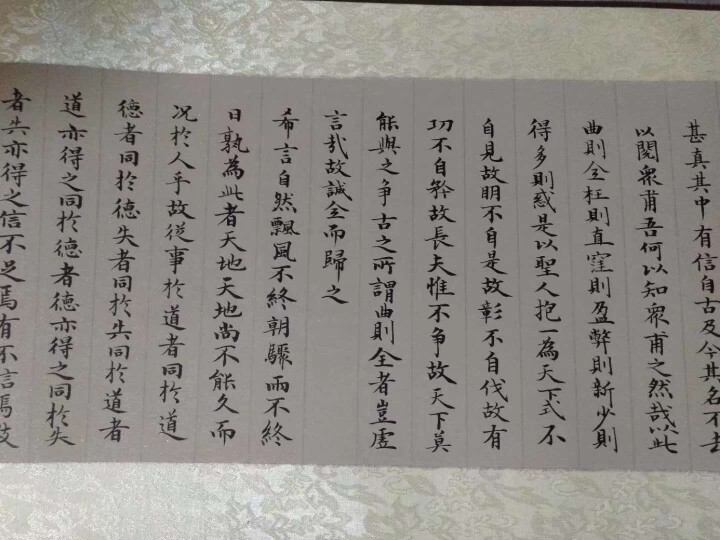 甚真其中有信自古及今其名不去
以閱衆甫吾何以知衆甫之然哉以此
曲則全枉則直窪則盈弊則新少則
得多則惑是以聖人抱一為天下式不
自見故明不自是故彰不自伐故有
功不自矜故長夫惟不争故天下莫
能與之争古之所謂曲則全者豈虛
言哉故誠全而歸之
希言自然飄風不終朝驟雨不終
日孰為此者天地天地尚不能久而
況於人乎故従事於道者同於道
德者同於德失者同於失同於道者
道亦得之同於德者德亦得之同於失
者失亦得之信不足焉有不信焉跂